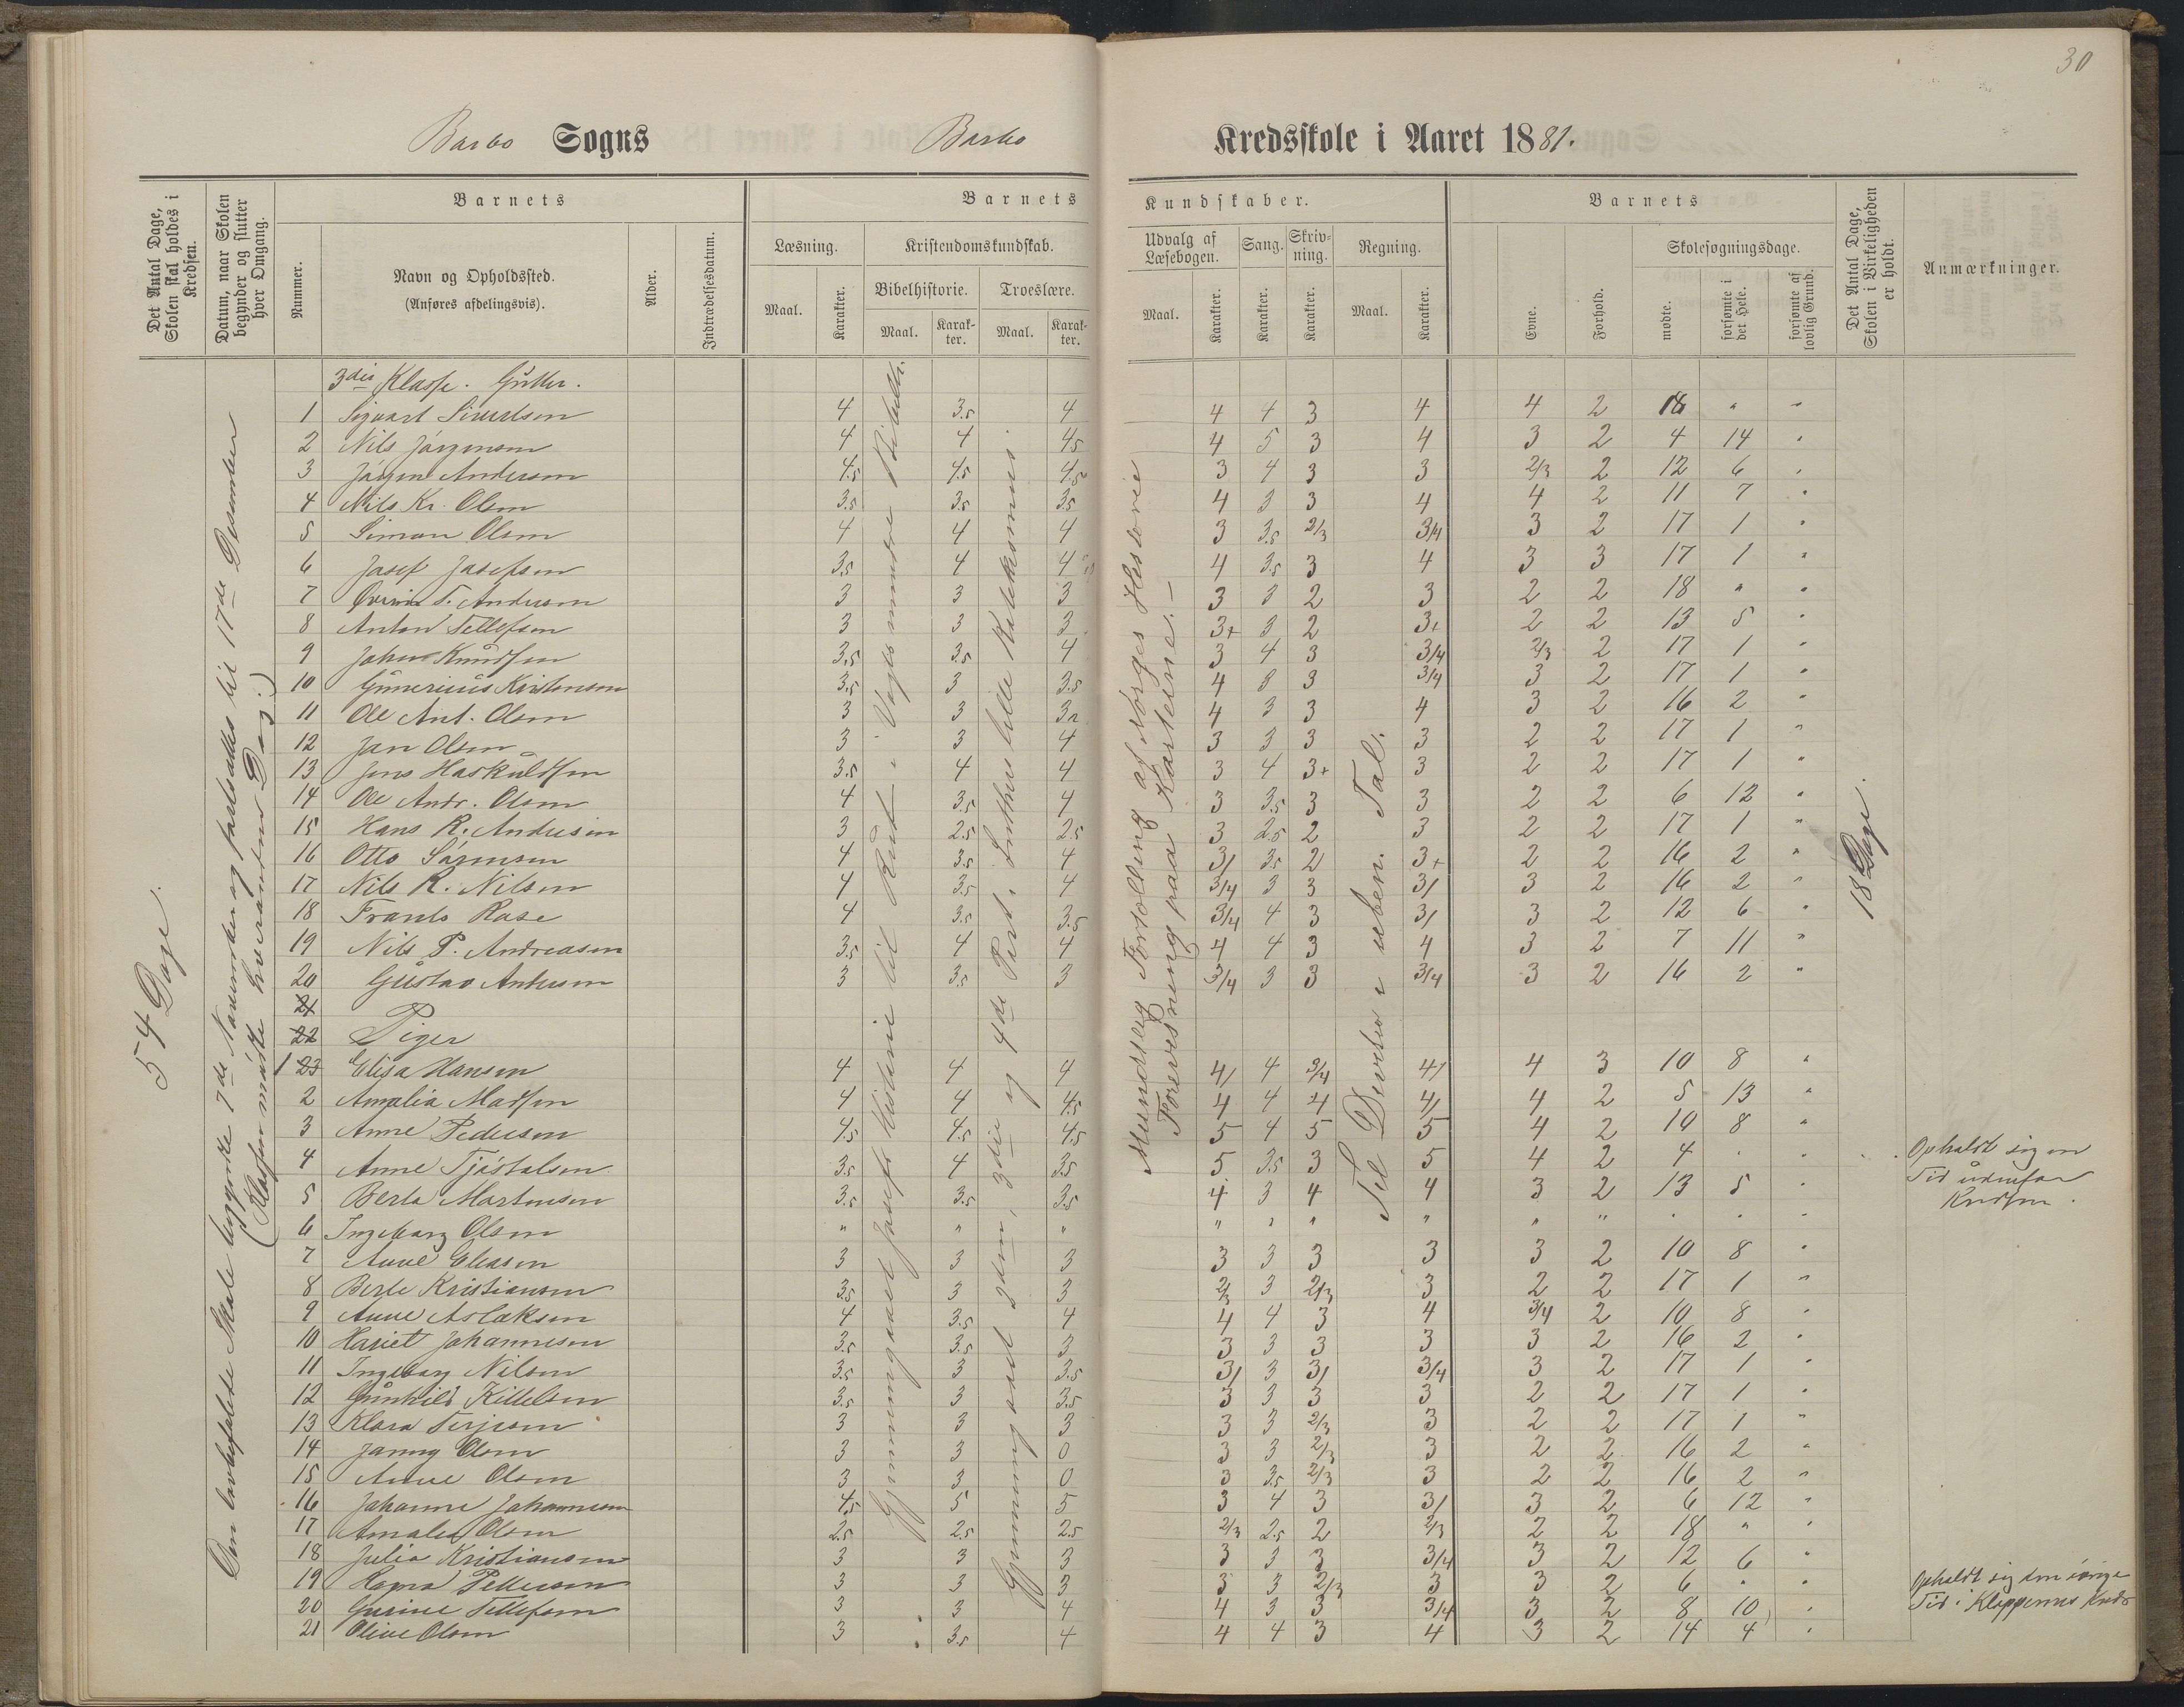 30
Barbo Sogns Barbo Kredsskole i Aaret 1881.
Det Antal Dage, Skolen skal holdes i Kredsen.
Datum, naar Skolen begynder og slutter hver Omgang.
Barnets
Nummer.
Navn og Opholdssted.
(Anføres afdelingsvis).
Alder.
Indtrædelsesdatum.
Barnets Kundskaber.
Læsning.
Maal. Karakter.
Kristendomskundskab.
Bibelhistorie. Troeslære.
Maal. Karakter. Maal. Karakter.
Udvalg af Læsebogen. Sang. Skrivning. Regning.
Maal. Karakter. Karakter. Karakter. Maal. Karakter.
Barnets
Evne. Forhold.
Skolesøgningsdage.
mødte. forsømte i det Hele. forsømte af lovlig Grund.
Det Antal Dage, Skolen i Virkeligheden er holdt.
Anmærkninger.
54 Dage.
18 Dage.
Til Division i ueben. Tal.
3die Klasse. Gutter.
1 Sigvart Sivertsen 4 3.5 4 4 4 3 4 4 2 18 " "
2 Nils Jørgensen 4 4 4.5 4 5 3 4 3 2 4 14 "
3 Jørgen Andersen 4.5 4.5 4.5 3 4 3 3 2/3 2 12 6 "
4 Nils Kr. Olsen 3.5 3.5 3.5 4 3 3 4 4 2 11 7 "
5 Simon Olsen 4 4 4 3 3.5 2/3 3/4 3 2 17 1 "
6 Josef Josefsen 3.5 4 4 4 3.5 3 4 3 3 17 1 "
7 T. Andersen 3 3 3 3 3 2 3 2 2 18 " "
8 Anton Tellefsen 3 3 3 3+ 3 2 3+ 2 2 13 5 "
9 Johan Knudsen 3.5 3.5 4 3 4 3 3/4 2/3 2 17 1 "
10 Gunerius Kristensen 3.5 3 3.5 4 3 3 3/4 3 2 17 1 "
11 Ole Ant. Olsen 3 3 4 3 3 4 3 2 16 2 "
12 Jan Olsen 3 3 4 3 3 3 3 2 2 17 1 "
13 Jens Haskuldsen 3.5 4 4 3 4 3+ 3 2 2 17 1 "
14 Ole Andr. Olsen 4 3.5 4 3 3.5 3 3 2 2 6 12 "
15 Hans R. Andersen 3 2.5 2.5 3 2.5 2 3 2 2 17 1 "
16 Otto Sørensen 4 3.5 4 3/ 3.5 2 3+ 2 2 16 2 "
17 Nils R. Nilsen 4 3.5 4 3/4 3 3 3/ 3 2 16 2 "
18 Frants Rose 4 3.5 3.5 3/4 4 3 3/ 3 2 12 6 "
19 Nils P. Andreasen 3.5 4 4 4 4 3 4 3 2 7 11 "
20 Gustav Andersen 3 3.5 3 3/4 3 3 3/4 3 2 16 2 "
21
22 Piger
1 23 Elisa Hansen 4 4 4 4/ 4 3/4 4/ 4 3 10 8 "
2 Amalia Madsen 4 4 4.5 4 4 4 4/ 4 2 5 13 "
3 Anne Pedersen 4.5 4.5 4.5 5 4 5 5 4 2 10 8 "
4 Anne Tjøstolsen 3.5 4 3.5 5 3.5 3 5 4 2 4 " " Opholdt sig en Tid udenfor Kredsen.
5 Berta Mortensen 3.5 3.5 3.5 4 3 4 4 3 2 13 5 "
6 Ingeborg Olsen " " " " " " " " " " " "
7 Anne Oleasen 3 3 3 3 3 3 3 3 2 10 8 "
8 Berte Kristiansen 3.5 3 3 2/3 3 2/3 3 2 2 17 1 "
9 Anne Aslaksen 4 3.5 4 4 4 3 4 3/4 2 10 8 "
10 Hariet Johannesen 3.5 3.5 3 3 3 3 3 3 2 16 2 "
11 Ingeborg Nilsen 3.5 3 3.5 3/ 3 3/ 3/4 3 2 17 1 "
12 Gunhild Kittelsen 3.5 3 3.5 3 3 3 3 2 2 17 1 "
13 Klara Terjesen 3 3 3 3 3 2/3 3 2 2 17 1 "
14 Janny Olsen 3 3 0 3 3 2/3 3 2 2 16 2 "
15 Anne Olsen 3 3 0 3 3.5 2/3 3 2 2 16 2 "
16 Johanne Johannesen 4.5 5 5 3 4 3 3/ 3 2 6 12 "
17 Amalia Olsen 2.5 2.5 2.5 2/3 2.5 2 2/3 2 2 18 " "
18 Julia Kristiansen 3 3 3 3 3 3 3/4 3 2 12 6 "
19 Pettersen 3 3 3 3 3 2/3 3 3 2 6 " " Opholdt sig den øvrige Tid i Klippernes Kreds
20 Gurine Tellefsen 3 3 4 4 3 3 3/4 3 2 8 10 "
21 Olive Olsen 3 3.5 4 4 4 3 4 3 2 14 4 "
Den lovbefalede Skole begyndte 7de November og fortsattes til 17de Desember
(Klassen maatte hverandren Dag.)
Gjennemgaaet Josefs Historie til Rut i Vogts mindre Bibelhi.
Gjennemgaaet 2den, 3die og 4de Part. Luthers lille Katekismus.
Mundtlig Fortælling af Norges Historie
Forevisning paa Karterne.